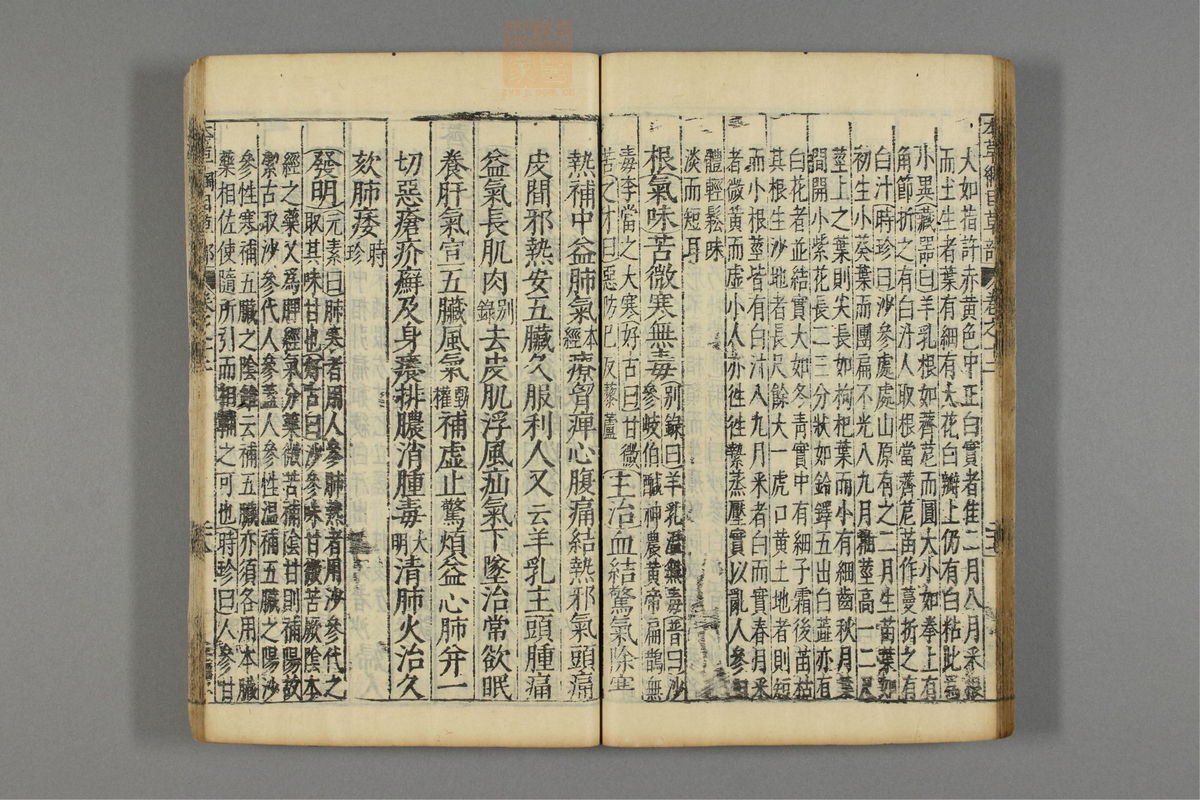 大如指許赤黃色中正白實者佳二月八月采根
而土生者葉有細有大花白瓣上仍有白粘此爲
小異藏器曰羊乳根如薺苨而圓大小如拳上有
角節折之有白汁人取根當薺苨苗作蔓折之有
白汁時珍曰沙參處處山原有之二月生苗葉如
初生小葵葉而團扁不光八九月抽莖高一二尺
莖上之葉則尖長如枸杞葉而小有細齒秋月葉
間開小紫花長二三分狀如鈴鐸五出白蕊亦有
白花者並結實大如冬青實中有細子霜後苗枯
其根生沙地者長尺餘大一虎口黃土地者則短
而小根莖皆有白汁八九月采者白而實春月采
者微黃而虛小人亦往往縶蒸壓實以亂人參但
體輕鬆味
淡而短耳
根氣味苦微寒無毒別錄曰羊乳溫無毒普曰沙
參岐伯鹹神農黃帝扁鵲無
毒李當之大寒好古曰甘微
苦之才曰惡防己反藜蘆
主治血結驚氣除寒
熱補中益肺氣本經療胃痺心腹痛結熱邪氣頭痛
皮間邪熱安五臟久服利人又云羊乳主頭腫痛
益氣長肌肉別錄去皮肌浮風疝氣下墜治常欲眠
養肝氣宣五臟風氣甄權補虛止驚煩益心肺并一
切惡瘡疥癬及身癢排膿消腫毒大明清肺火治久
欬肺痿時珍
發明元素曰肺寒者用人參肺熱者用沙參代之
取其味甘也好古曰沙參味甘微苦厥陰本
經之藥又爲脾經氣分藥微苦補陰甘則補陽故
潔古取沙參代人參蓋人參性溫補五臟之陽沙
參性寒補五臟之陰雖云補五臟亦須各用本臟
藥相佐使隨所引而相輔之可也時珍曰人參甘